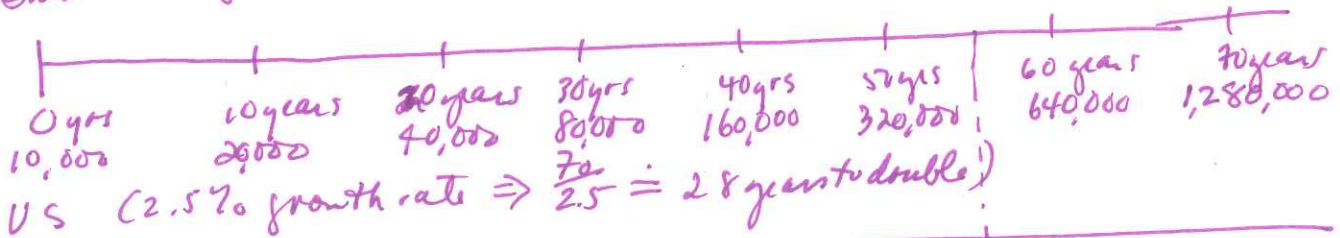 0 yrs 10 years 20 years 30 yrs 40 yrs 50 yrs 60 years 70 years
10,000 20,000 40,000 80,000 160,000 320,000 640,000 1,280,000
US (2.5% growth rate ⇒ 70/2.5 ≐ 28 years to double!)